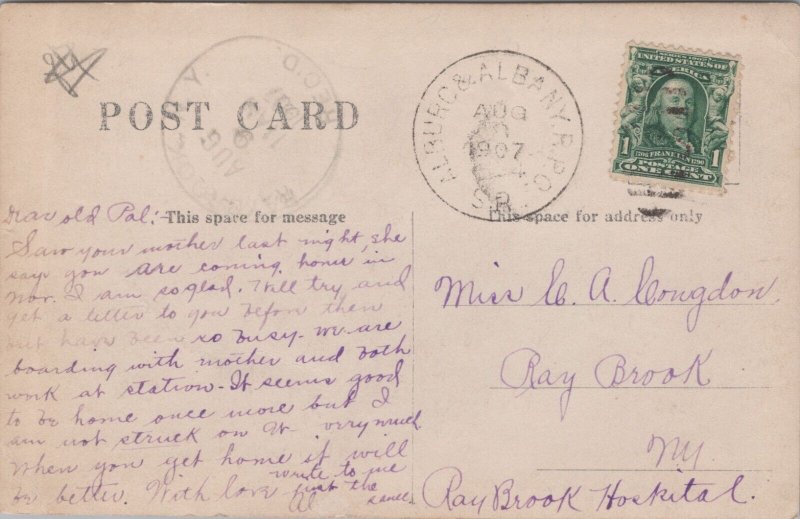 POST CARD
REC'D.
AUG
9
N.Y.
ALBURG & ALBANY R.P.O.
AUG
1907
UNITED STATES OF AMERICA
1
1
1706 FRANKLIN 1790
POSTAGE
ONE CENT
This space for message
This space for address only
Dear old Pal:-
Saw your mother last night, she
says you are coming home in
Nov. I am so glad. Will try and
get a letter to you before then
but have been so busy - we are
boarding with mother and both
work at station - It seems good
to be home once more but I
am not struck on it very much
When you get home it will
be better. With love write to me
just the
same
Al
Miss C. A. Congdon,
Ray Brook
NY
Ray Brook Hoskital.